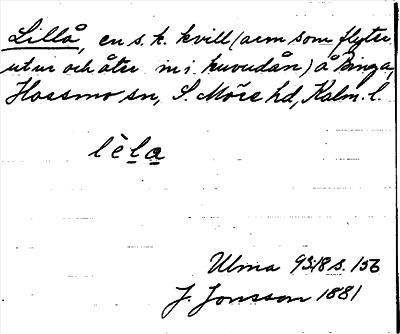 Lillå, en s.k. kvill (arm som flyter
ut ur och åter in i huvudån) å Binga,
Hossmo sn, S. Möre hd, Kalm. l.
lèla
Ulma 93:18 s. 156
J. Jonsson 1881